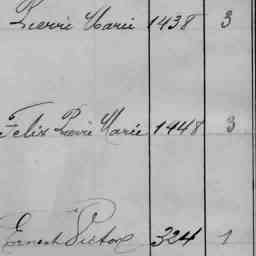 Pierre Marie 1438 3
Felix Pierre Marie 1448 3
Ernest Victor 324 1